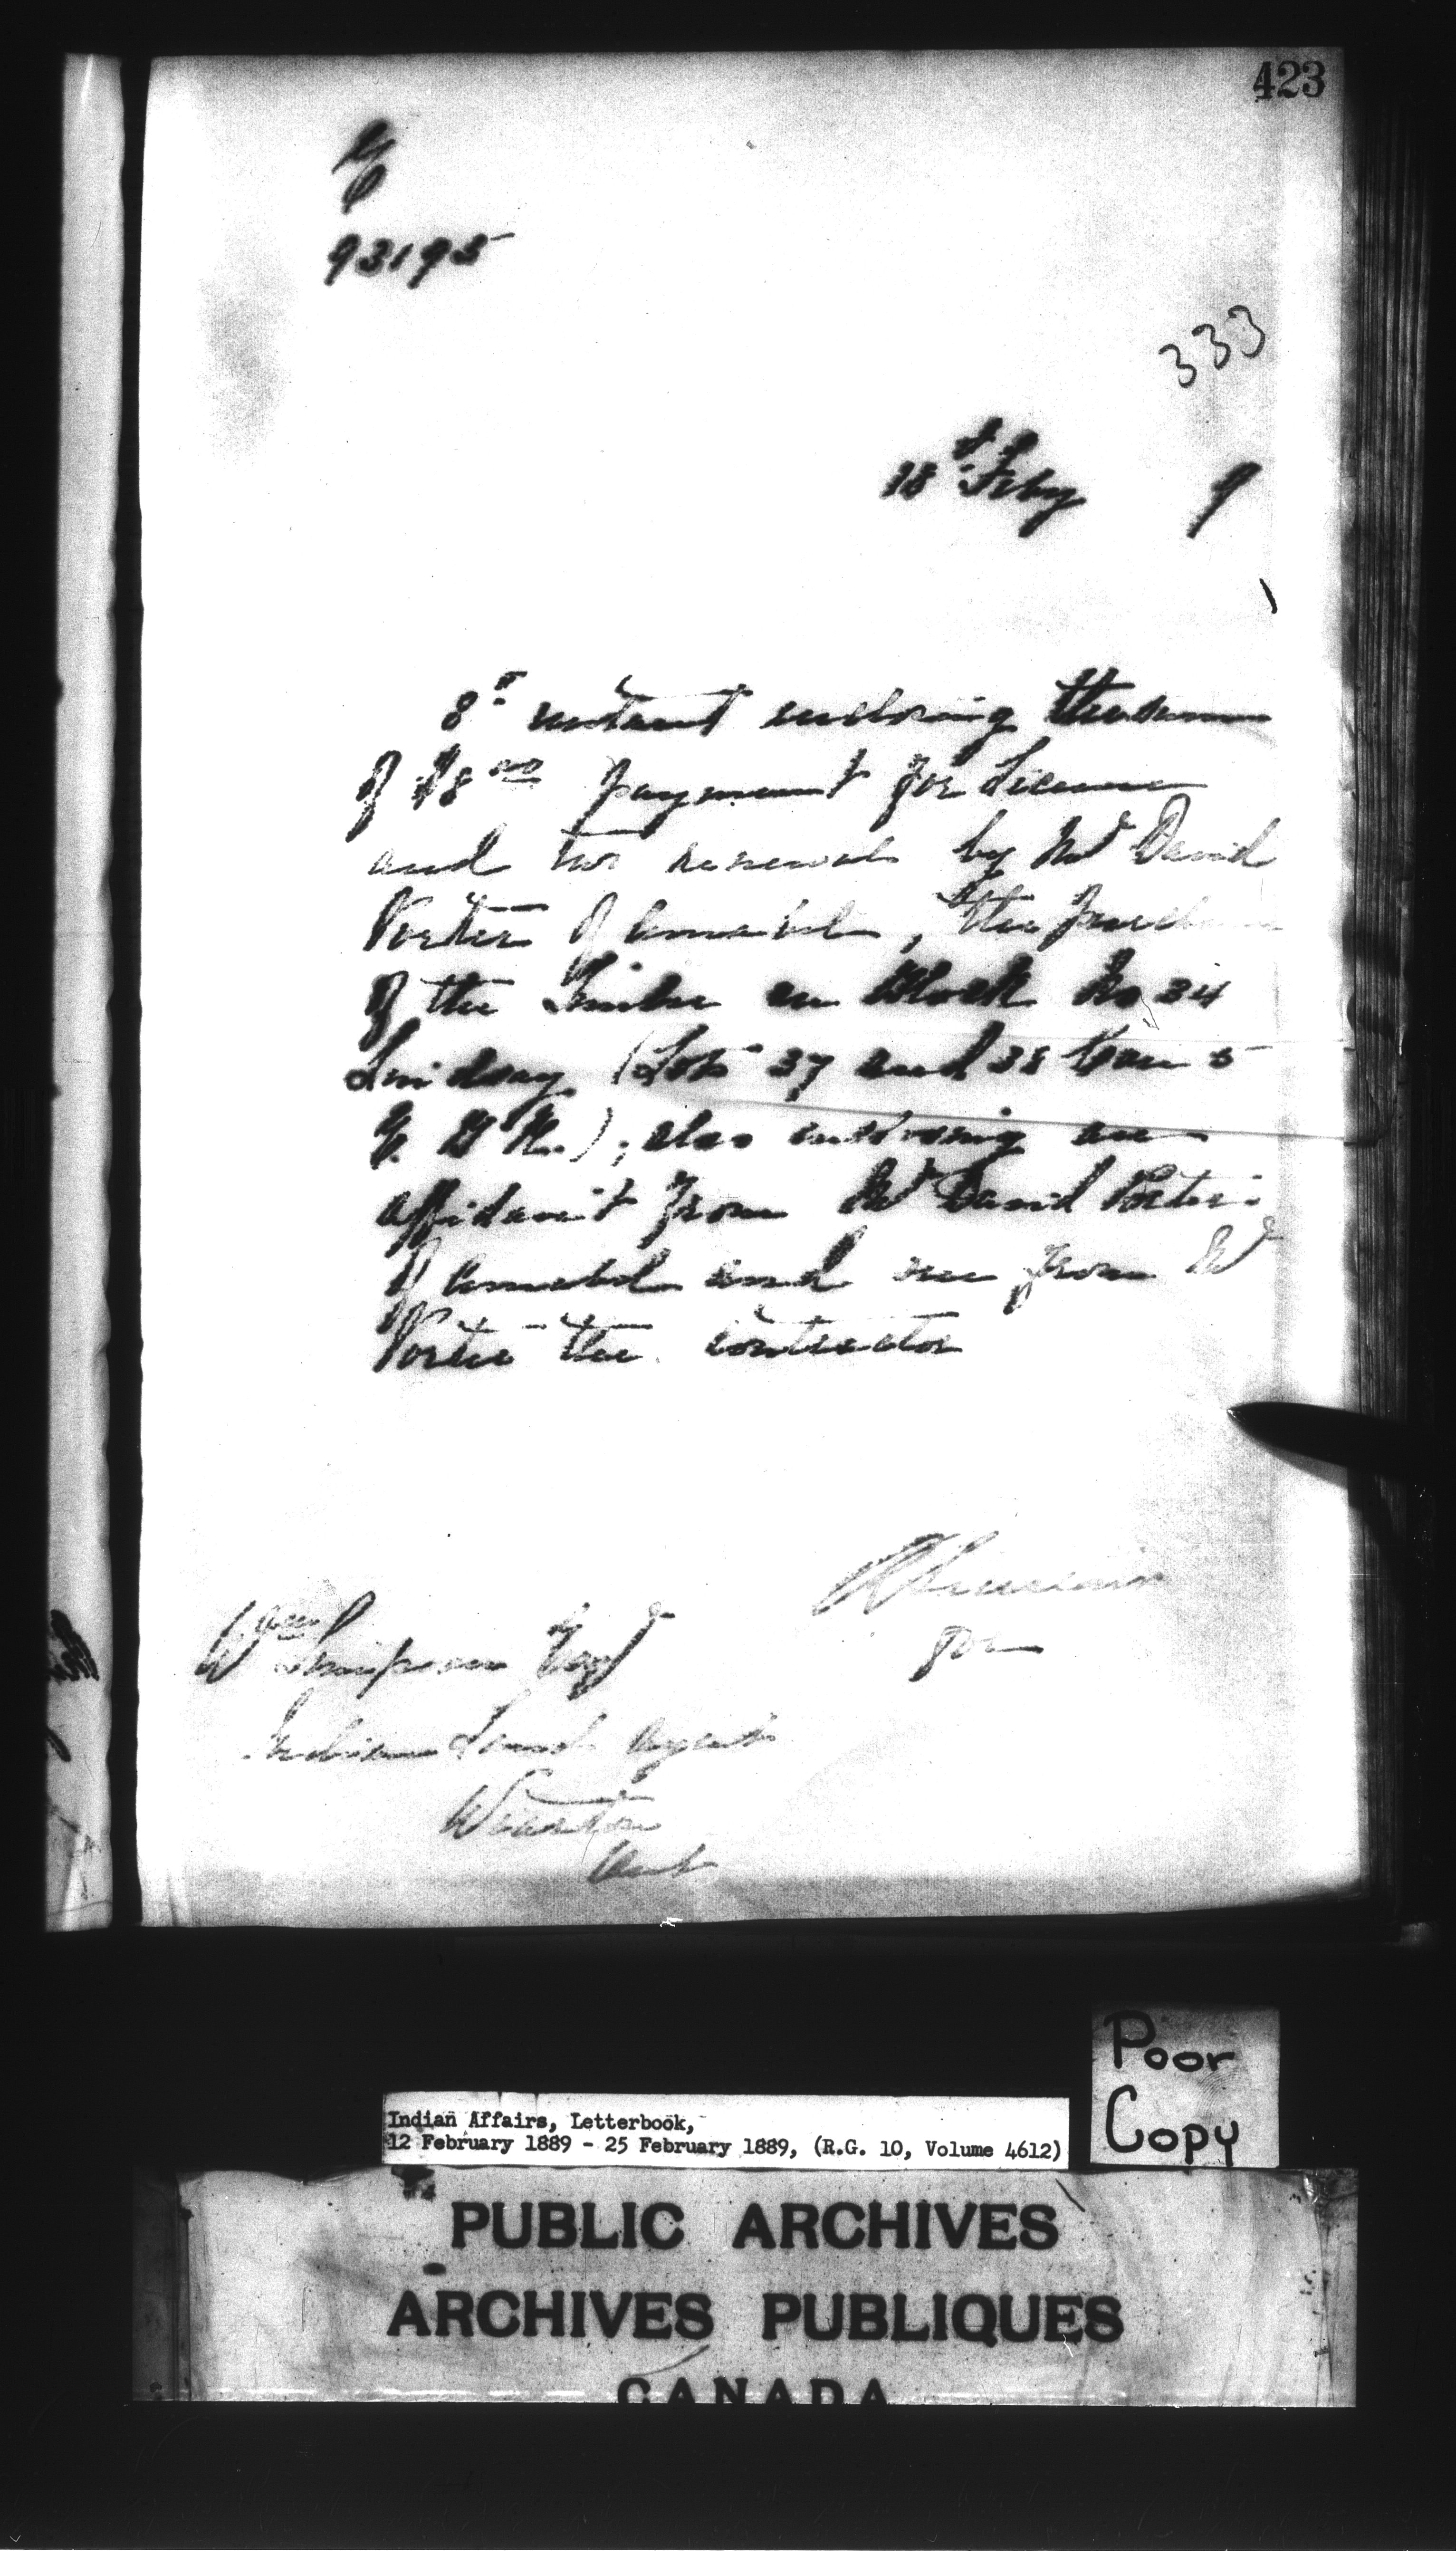 423
93195
333
18th Feby 9
8th instant enclosing the sum
of $8.00 payment for License
and two renewals by Mr David
Porter of Amabel, the
of the Timber on Block No 34
Lindsay (Lots 37 and 38 Con 5
E. B R.); also enclosing an
affidavit from Mr David Porter
of Amabel and one from Mr
Porter the contractor
for
Wm Simpson Esqr
Indian Lands Agent
Wiarton
Ont
Poor
Copy
Indian Affairs, Letterbook,
12 February 1889 - 25 February 1889, (R.G. 10, Volume 4612)
PUBLIC ARCHIVES
ARCHIVES PUBLIQUES
CANADA